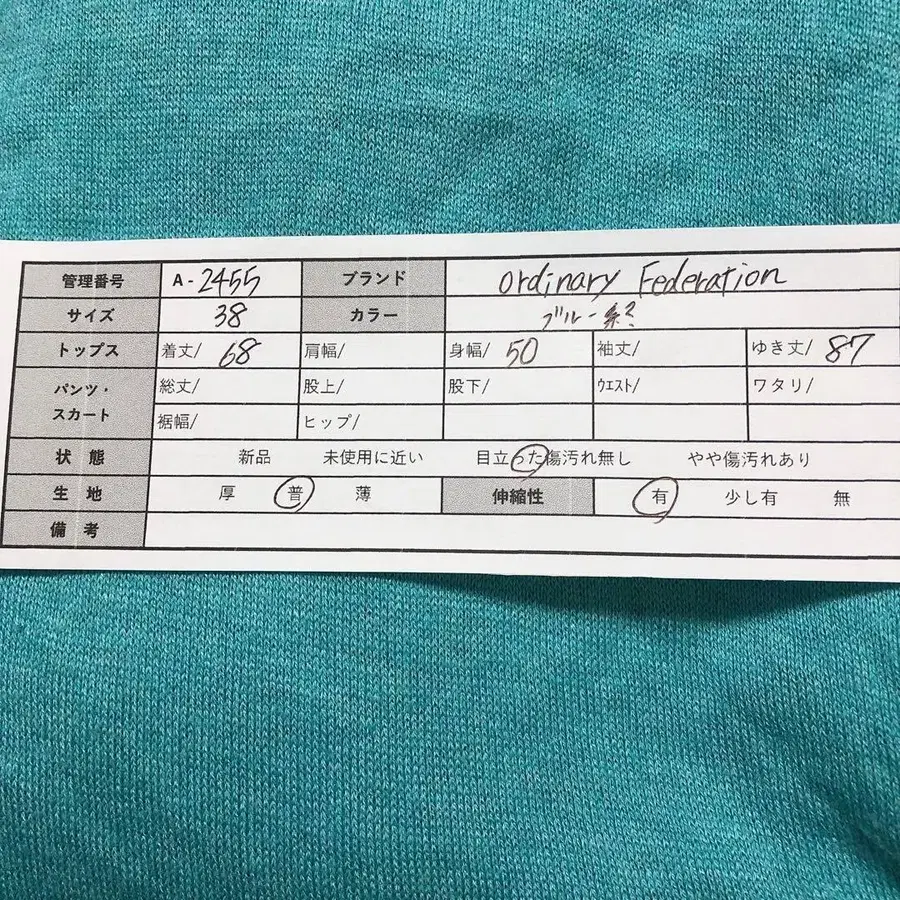 管理番号 A-2455 ブランド ordinary Federation
サイズ 38 カラー ブルー系?
トップス 着丈/ 68 肩幅/ 身幅/ 50 袖丈/ ゆき丈/ 87
パンツ・スカート 総丈/ 股上/ 股下/ ウエスト/ ワタリ/
裾幅/ ヒップ/
状態 新品 未使用に近い 目立った傷汚れ無し やや傷汚れあり
生地 厚 普 薄 伸縮性 有 少し有 無
備考